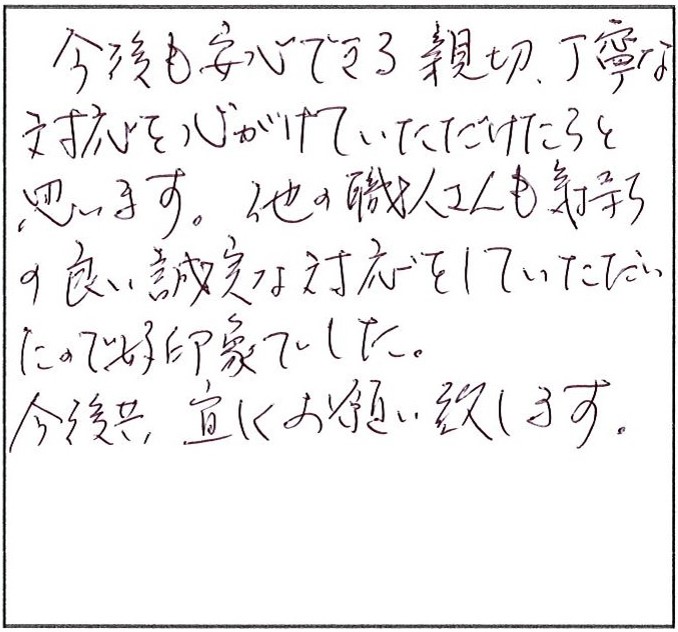 今後も安心できる親切、丁寧な
対応を心がけていただけたらと
思います。他の職人さんも気持ち
の良い誠実な対応をしていただい
たので好印象でした。
今後共、宜しくお願い致します。